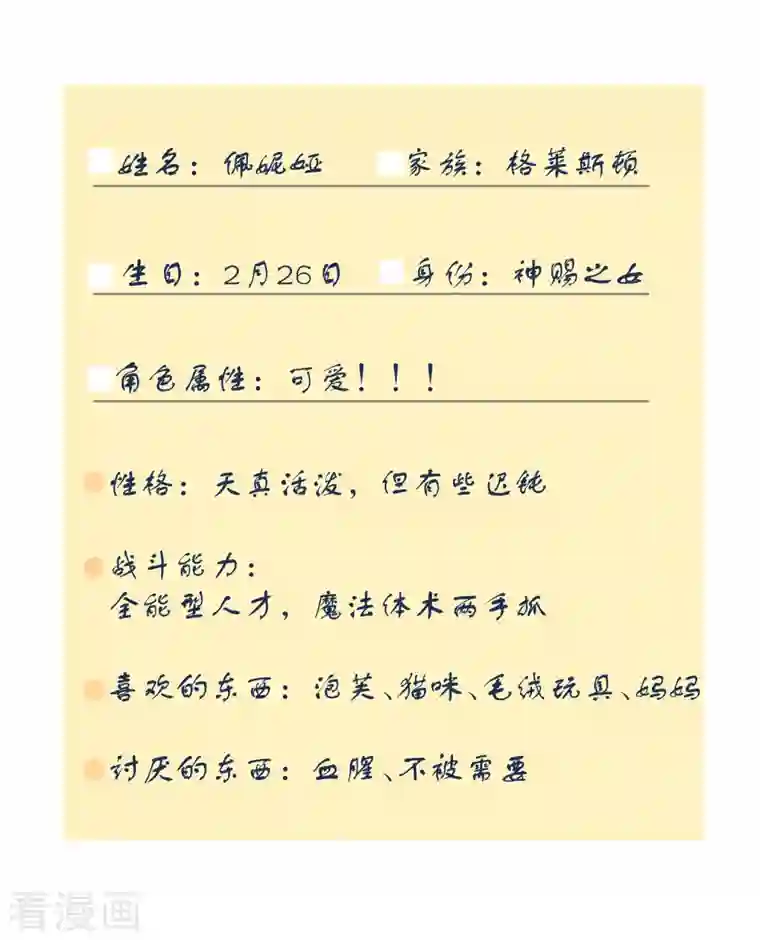 姓名：佩妮娅 家族：格莱斯顿
生日：2月26日 身份：神赐之女
角色属性：可爱！！！
性格：天真活泼，但有些迟钝
战斗能力：
全能型人才，魔法体术两手抓
喜欢的东西：泡芙、猫咪、毛绒玩具、妈妈
讨厌的东西：血腥、不被需要
看漫画